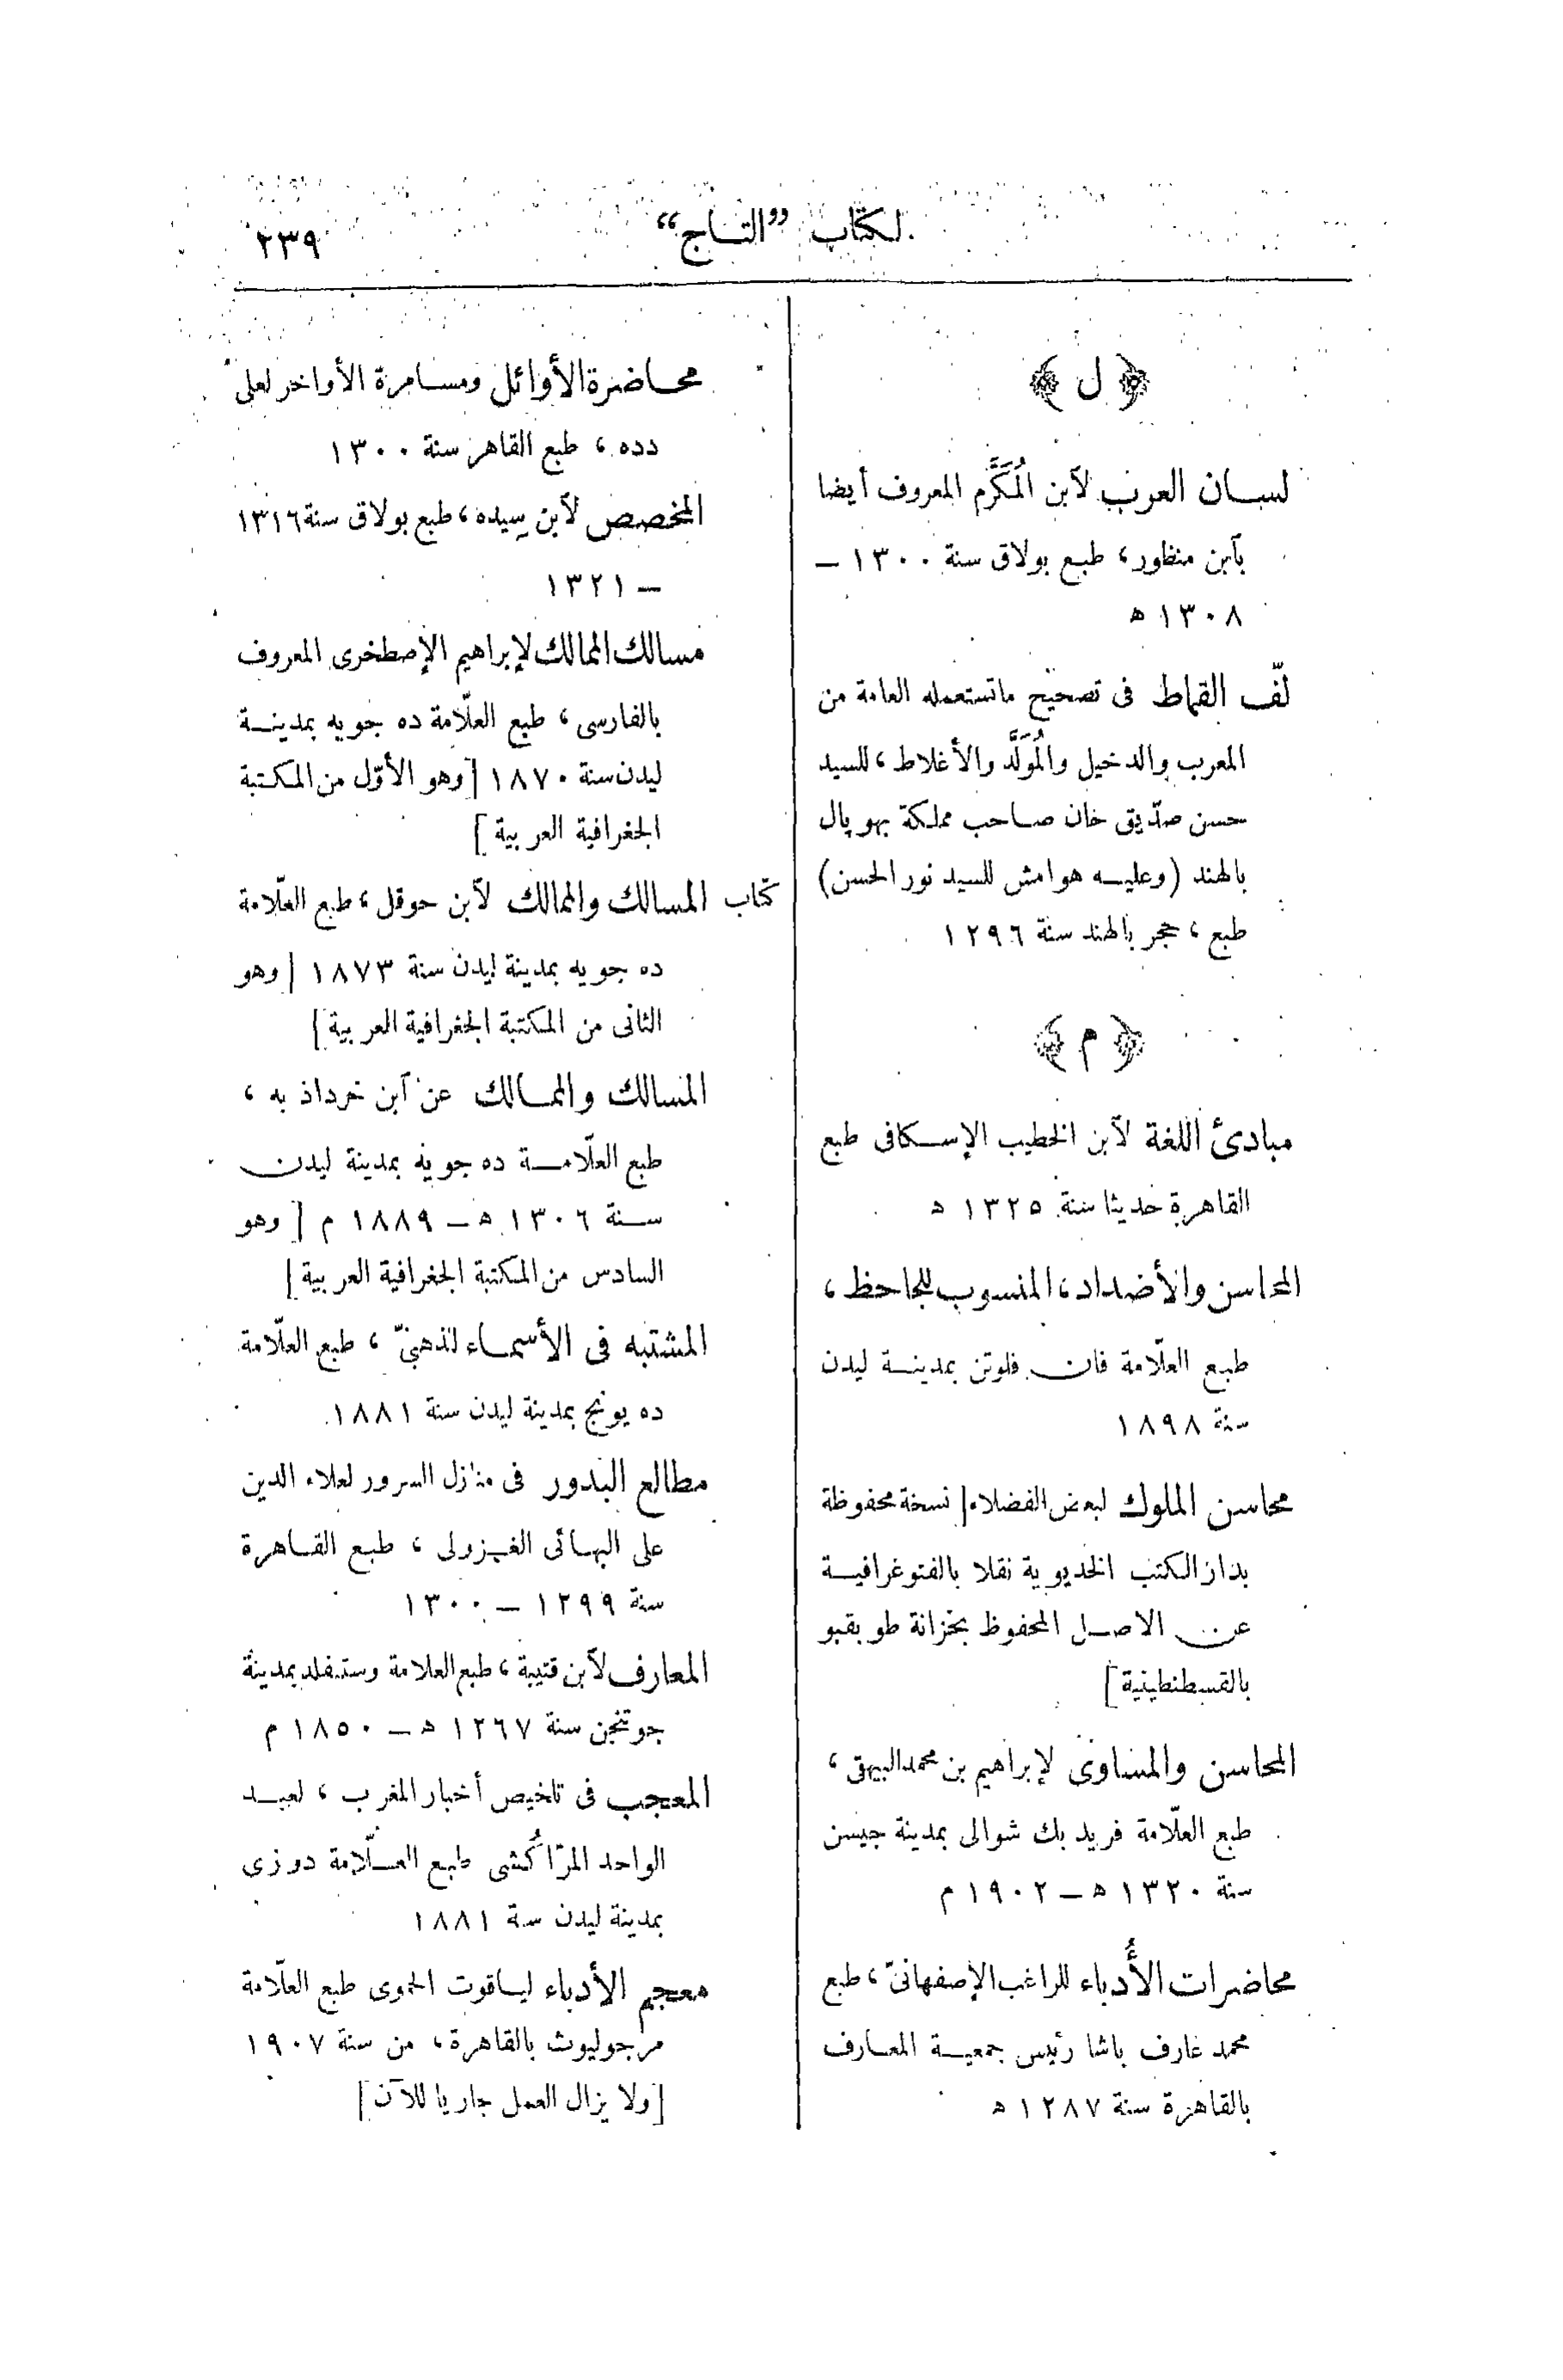 لكتاب "التاج"
٢٣٩
﴿ ل ﴾
لسان العرب لآبن المُكَرَّم المعروف أيضا
بآبن منظور، طبع بولاق سنة ١٣٠٠ –
١٣٠٨ ه
لفّ القماط فى تصحيح ماتستعمله العامة من
المعرب والدخيل والمُوَلَّد والأغلاط، للسيد
حسن صدّيق خان صاحب مملكة بهوپال
بالهند (وعليه هوامش للسيد نور الحسن)
طبع، حجر بالهند سنة ١٢٩٦
﴿ م ﴾
مبادئ اللغة لآبن الخطيب الإسكافى طبع
القاهرة حديثا سنة ١٣٢٥ ه
المحاسن والأضداد، المنسوب للجاحظ،
طبع العلّامة فان فلوتن بمدينة ليدن
سنة ١٨٩٨
محاسن الملوك لبعض الفضلاء [نسخة محفوظة
بدار الكتب الخديوية نقلا بالفتوغرافية
عن الاصل المحفوظ بخزانة طوبقبو
بالقسطنطينية]
المحاسن والمساوى لإبراهيم بن محمد البيهقى،
طبع العلّامة فريدبك شوالى بمدينة جيسن
سنة ١٣٢٠ ه – ١٩٠٢ م
محاضرات الأُدباء للراغب الإصفهانىّ، طبع
محمد عارف باشا رئيس جمعية المعارف
بالقاهرة سنة ١٢٨٧ ه
محاضرة الأوائل ومسامرة الأواخر لعلى
دده، طبع القاهر سنة ١٣٠٠
المخصص لآبن سِيده، طبع بولاق سنة ١٣١٦
– ١٣٢١
مسالك الممالك لإبراهيم الإصطخرى المعروف
بالفارسى، طبع العلّامة ده جويه بمدينة
ليدن سنة ١٨٧٠ [وهو الأوّل من المكتبة
الجغرافية العربية]
كتاب المسالك والممالك لآبن حوقل، طبع العلّامة
ده جويه بمدينة ليدن سنة ١٨٧٣ [وهو
الثانى من المكتبة الجغرافية العربية]
المسالك والممالك عن آبن خرداذ به،
طبع العلّامة ده جويه بمدينة ليدن
سنة ١٣٠٦ ه – ١٨٨٩ م [وهو
السادس من المكتبة الجغرافية العربية]
المشتبه فى الأسماء للذهبىّ، طبع العلّامة
ده يونج بمدينة ليدن سنة ١٨٨١
مطالع البدور فى منازل السرور لعلاء الدين
على البهائى الغزولى، طبع القاهرة
سنة ١٢٩٩ – ١٣٠٠
المعارف لآبن قتيبة، طبع العلامة وستنفلد بمدينة
جوتنجن سنة ١٢٦٧ ه – ١٨٥٠ م
المعجب فى تلخيص أخبار المغرب، لعبد
الواحد المرّاكُشى طبع العلّامة دوزى
بمدينة ليدن سة ١٨٨١
معجم الأدباء لياقوت الحموى طبع العلّامة
مرجوليوث بالقاهرة، من سنة ١٩٠٧
[ولا يزال العمل جاريا للآن]